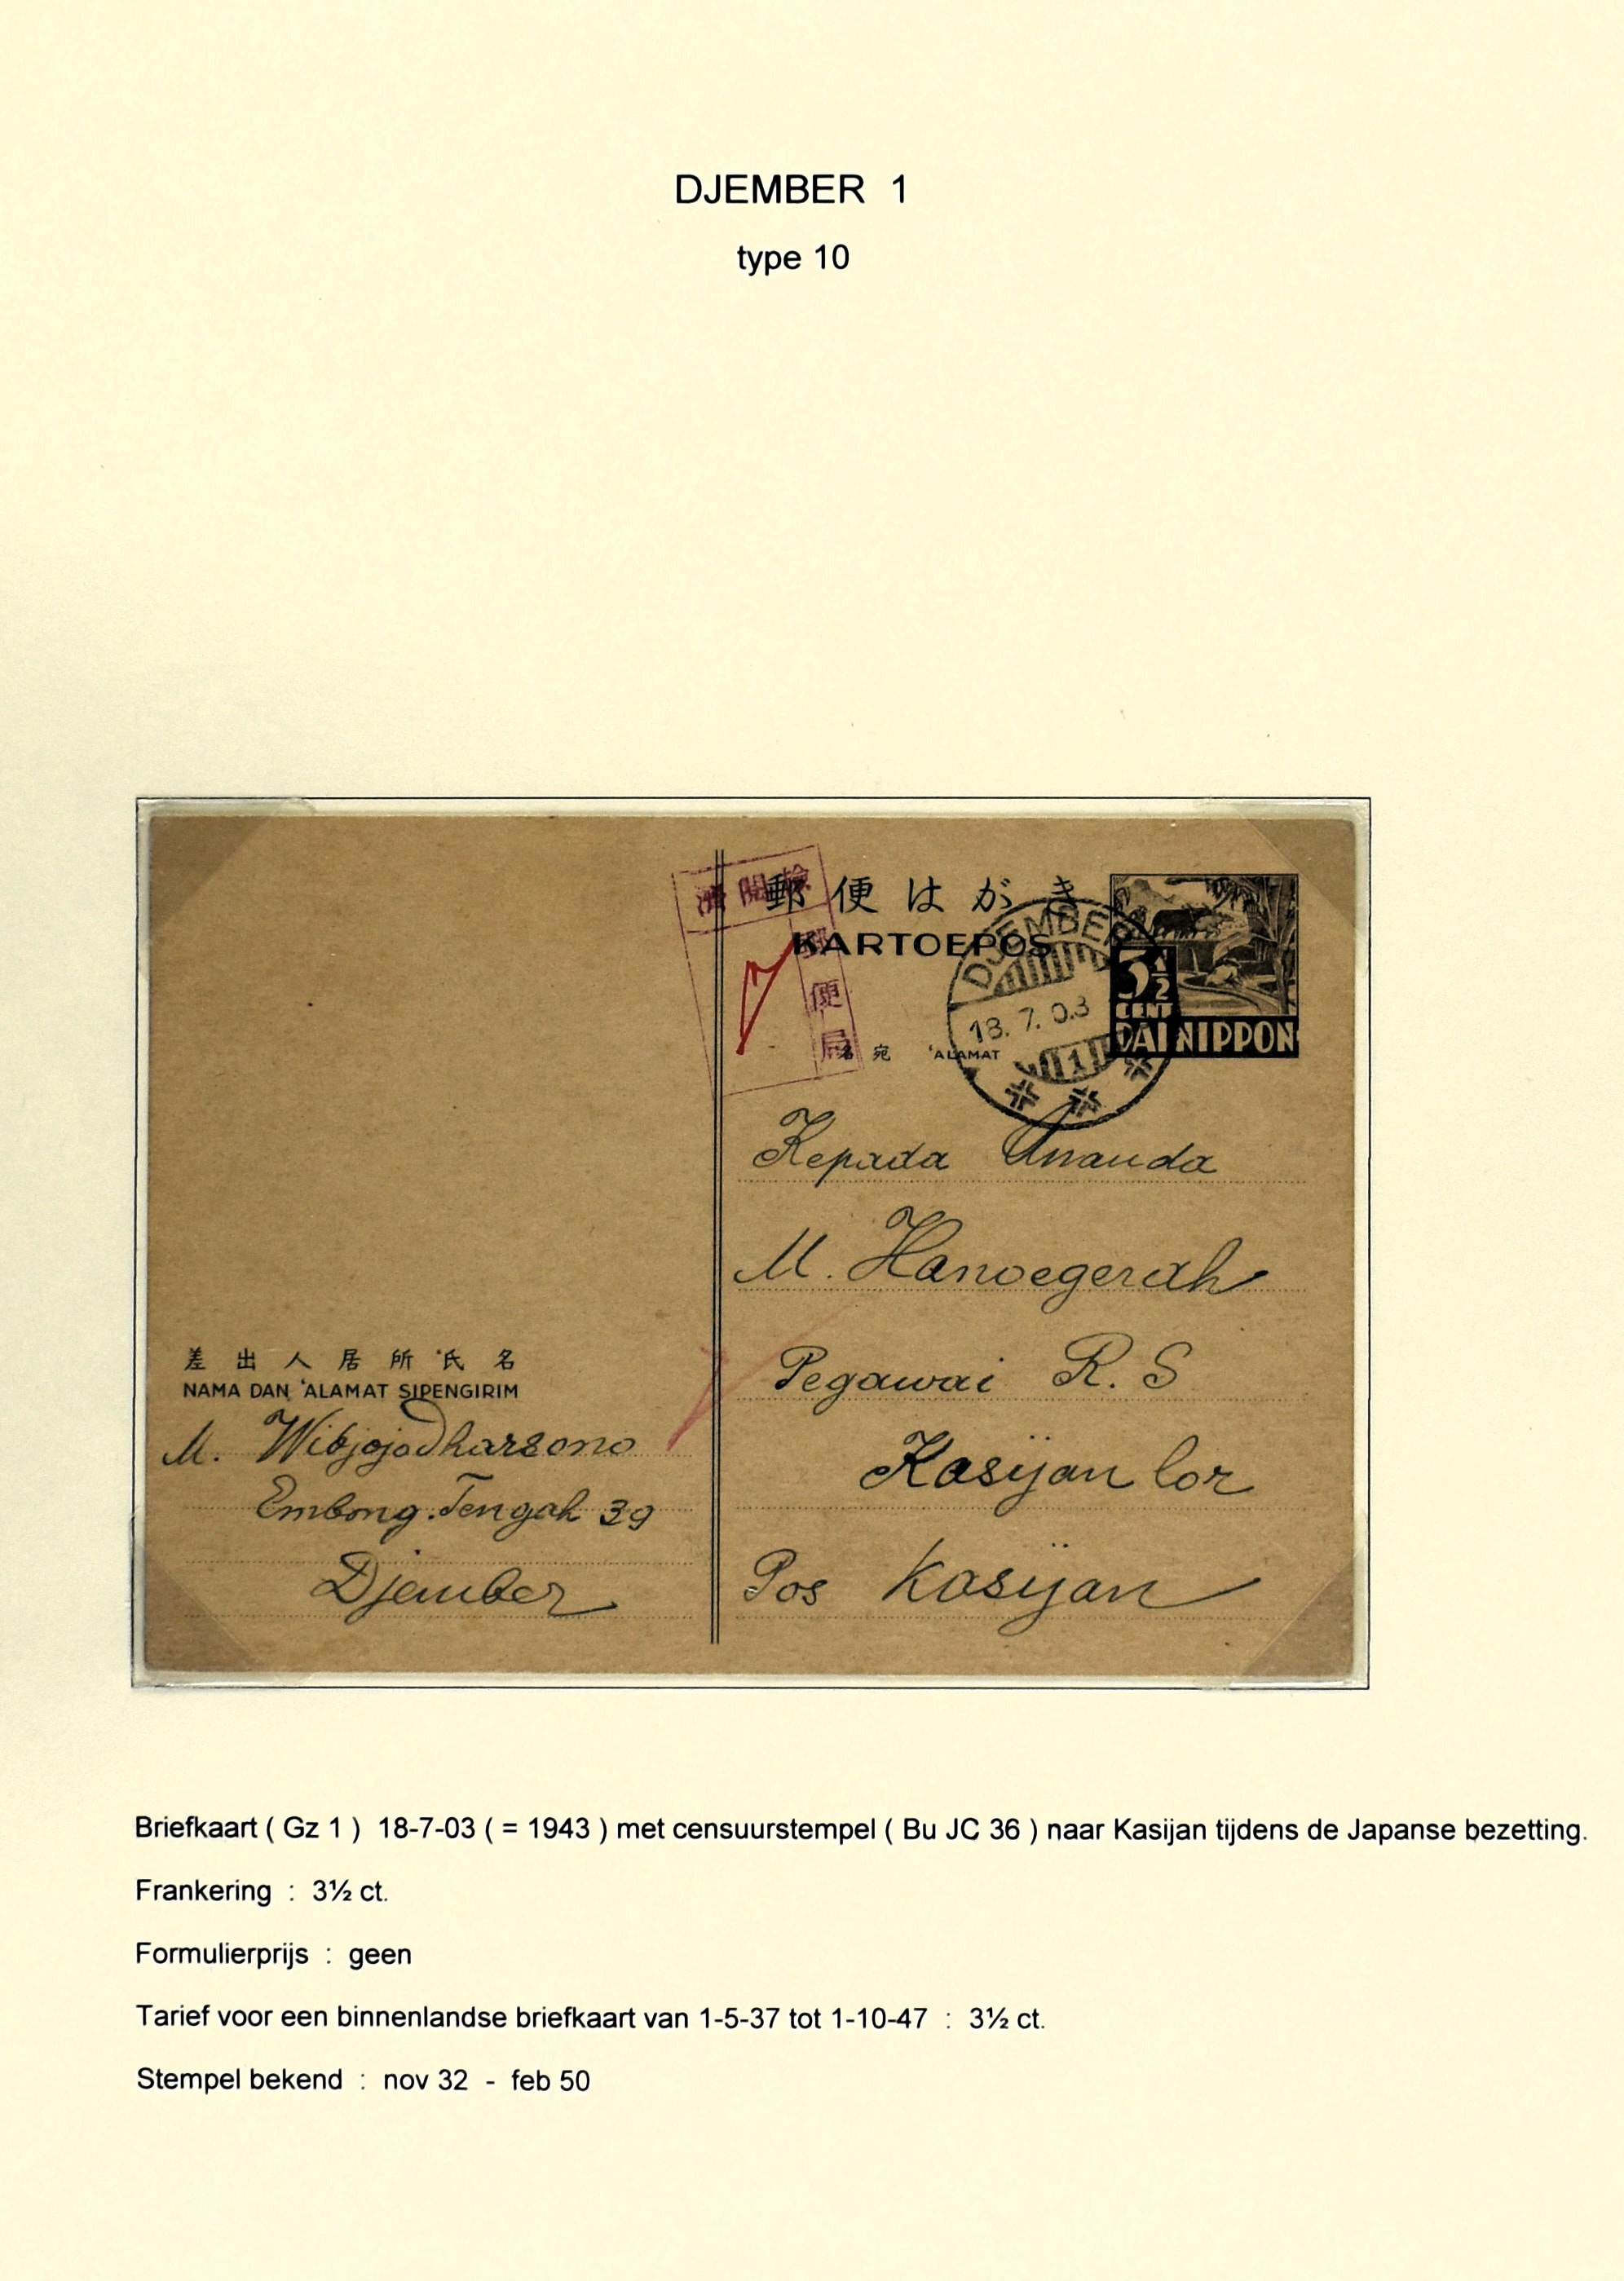 DJEMBER 1
type 10
検閲済
郵便局
郵便はがき
KARTOEPOS
DJEMBER
18.7.03
1
3½
CENT
DAI NIPPON
名宛 'ALAMAT
Kepada Ananda
M. Hanoegerah
Pegawai R. S
Kasijan lor
Pos Kasijan
差出人居所氏名
NAMA DAN 'ALAMAT SIPENGIRIM
M. Wibjojodharsono
Embong Tengah 39
Djember
Briefkaart ( Gz 1 ) 18-7-03 ( = 1943 ) met censuurstempel ( Bu JC 36 ) naar Kasijan tijdens de Japanse bezetting.
Frankering : 3½ ct.
Formulierprijs : geen
Tarief voor een binnenlandse briefkaart van 1-5-37 tot 1-10-47 : 3½ ct.
Stempel bekend : nov 32 - feb 50